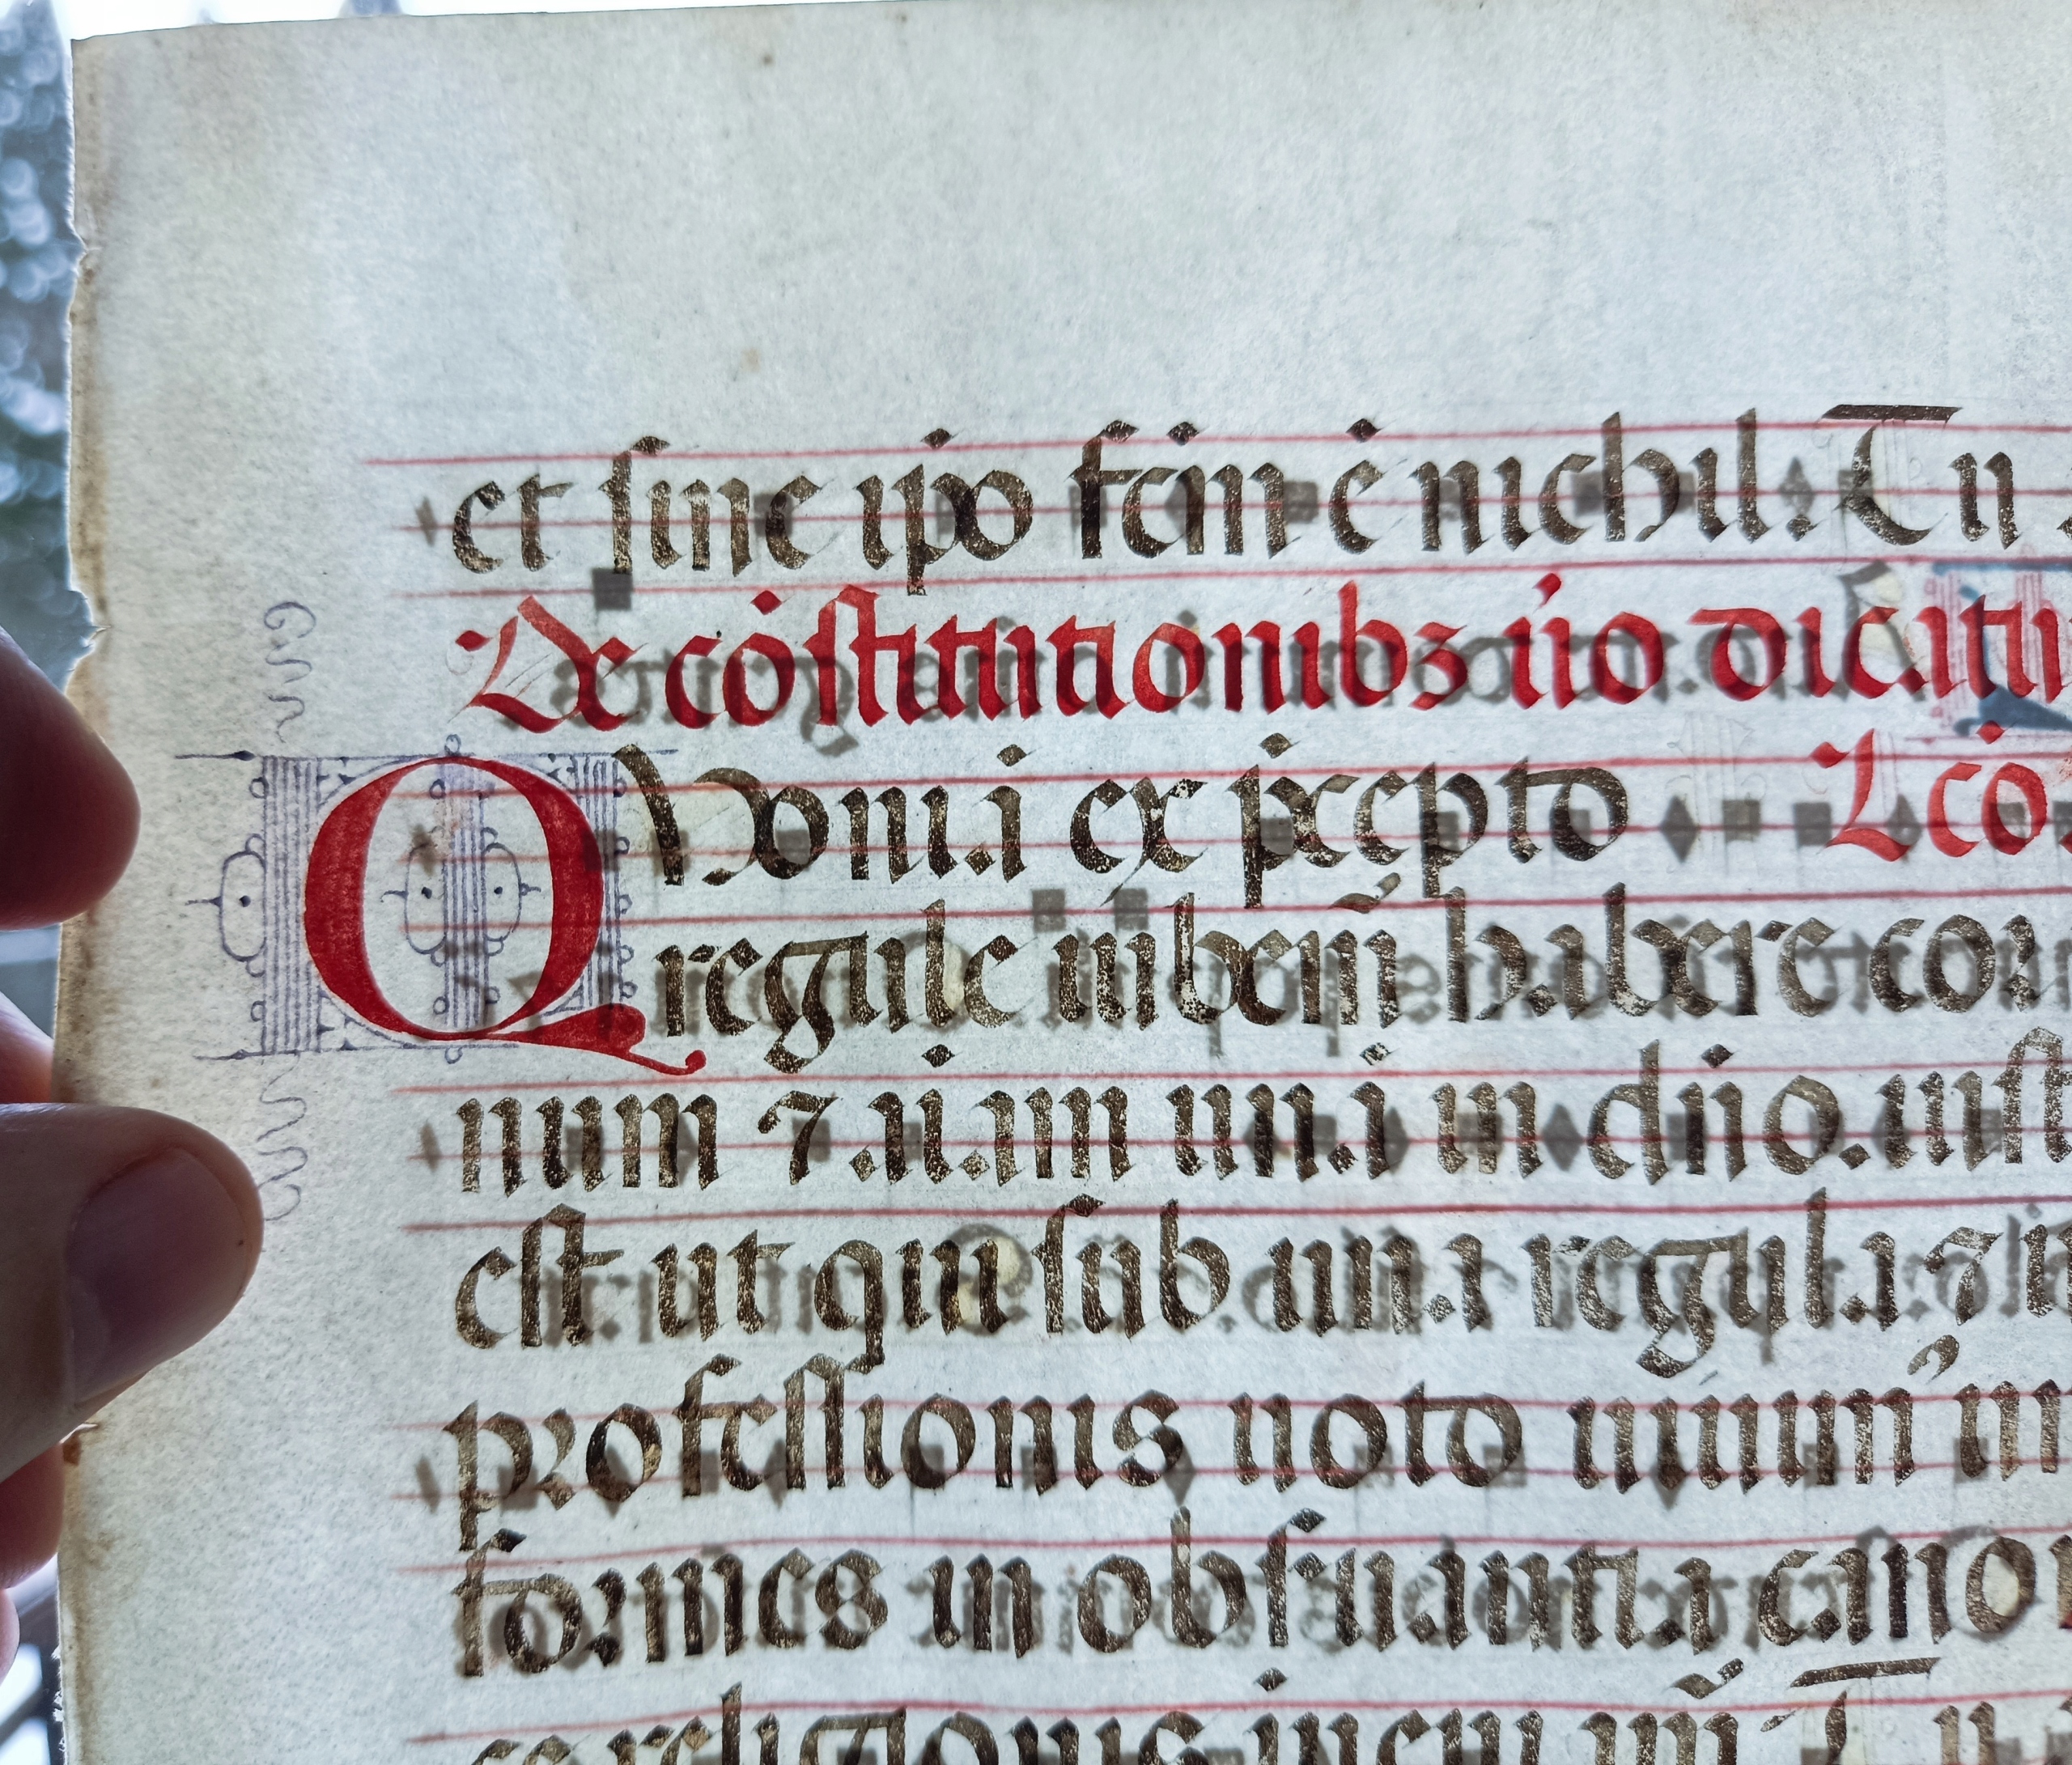 et sine ip̄o fcm̄ ē nichil. Tu
De cōstitutionibꝫ u̇o dicitur
Qvoniȧ ex p̄cepto Lcō
regule iubem̄ habere cor
num ⁊ aiam unȧ in dn̄o. iust
est ut qui sub una regula ⁊
professionis uoto uiuim̾ un
formes in obẜuantia canon